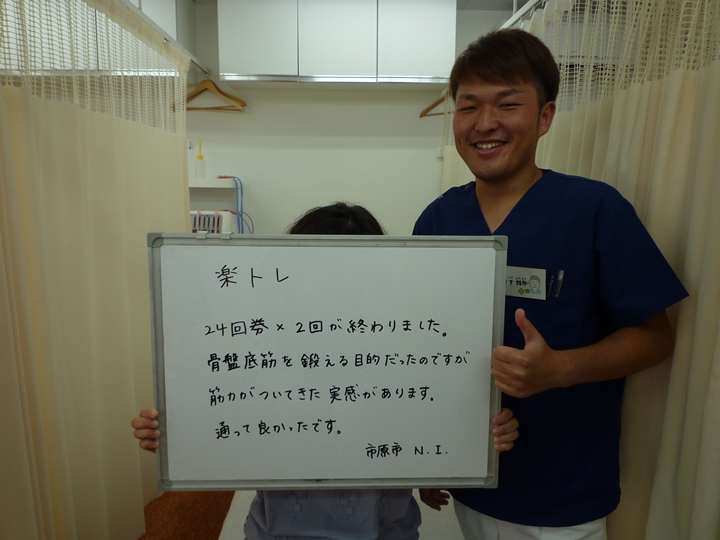 楽トレ
24回券×2回が終わりました。
骨盤底筋を鍛える目的だったのですが
筋力がついてきた実感があります。
通って良かったです。
市原市 N.I.